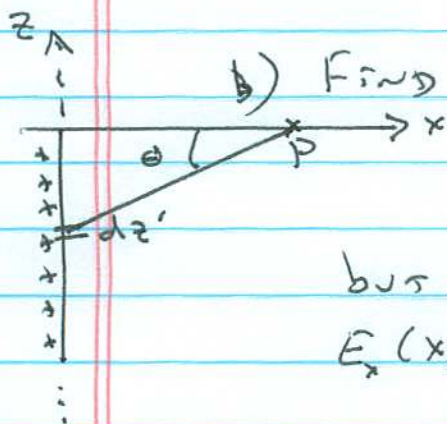 z
b) Find
x
θ
P
dz'
but
E_x (x